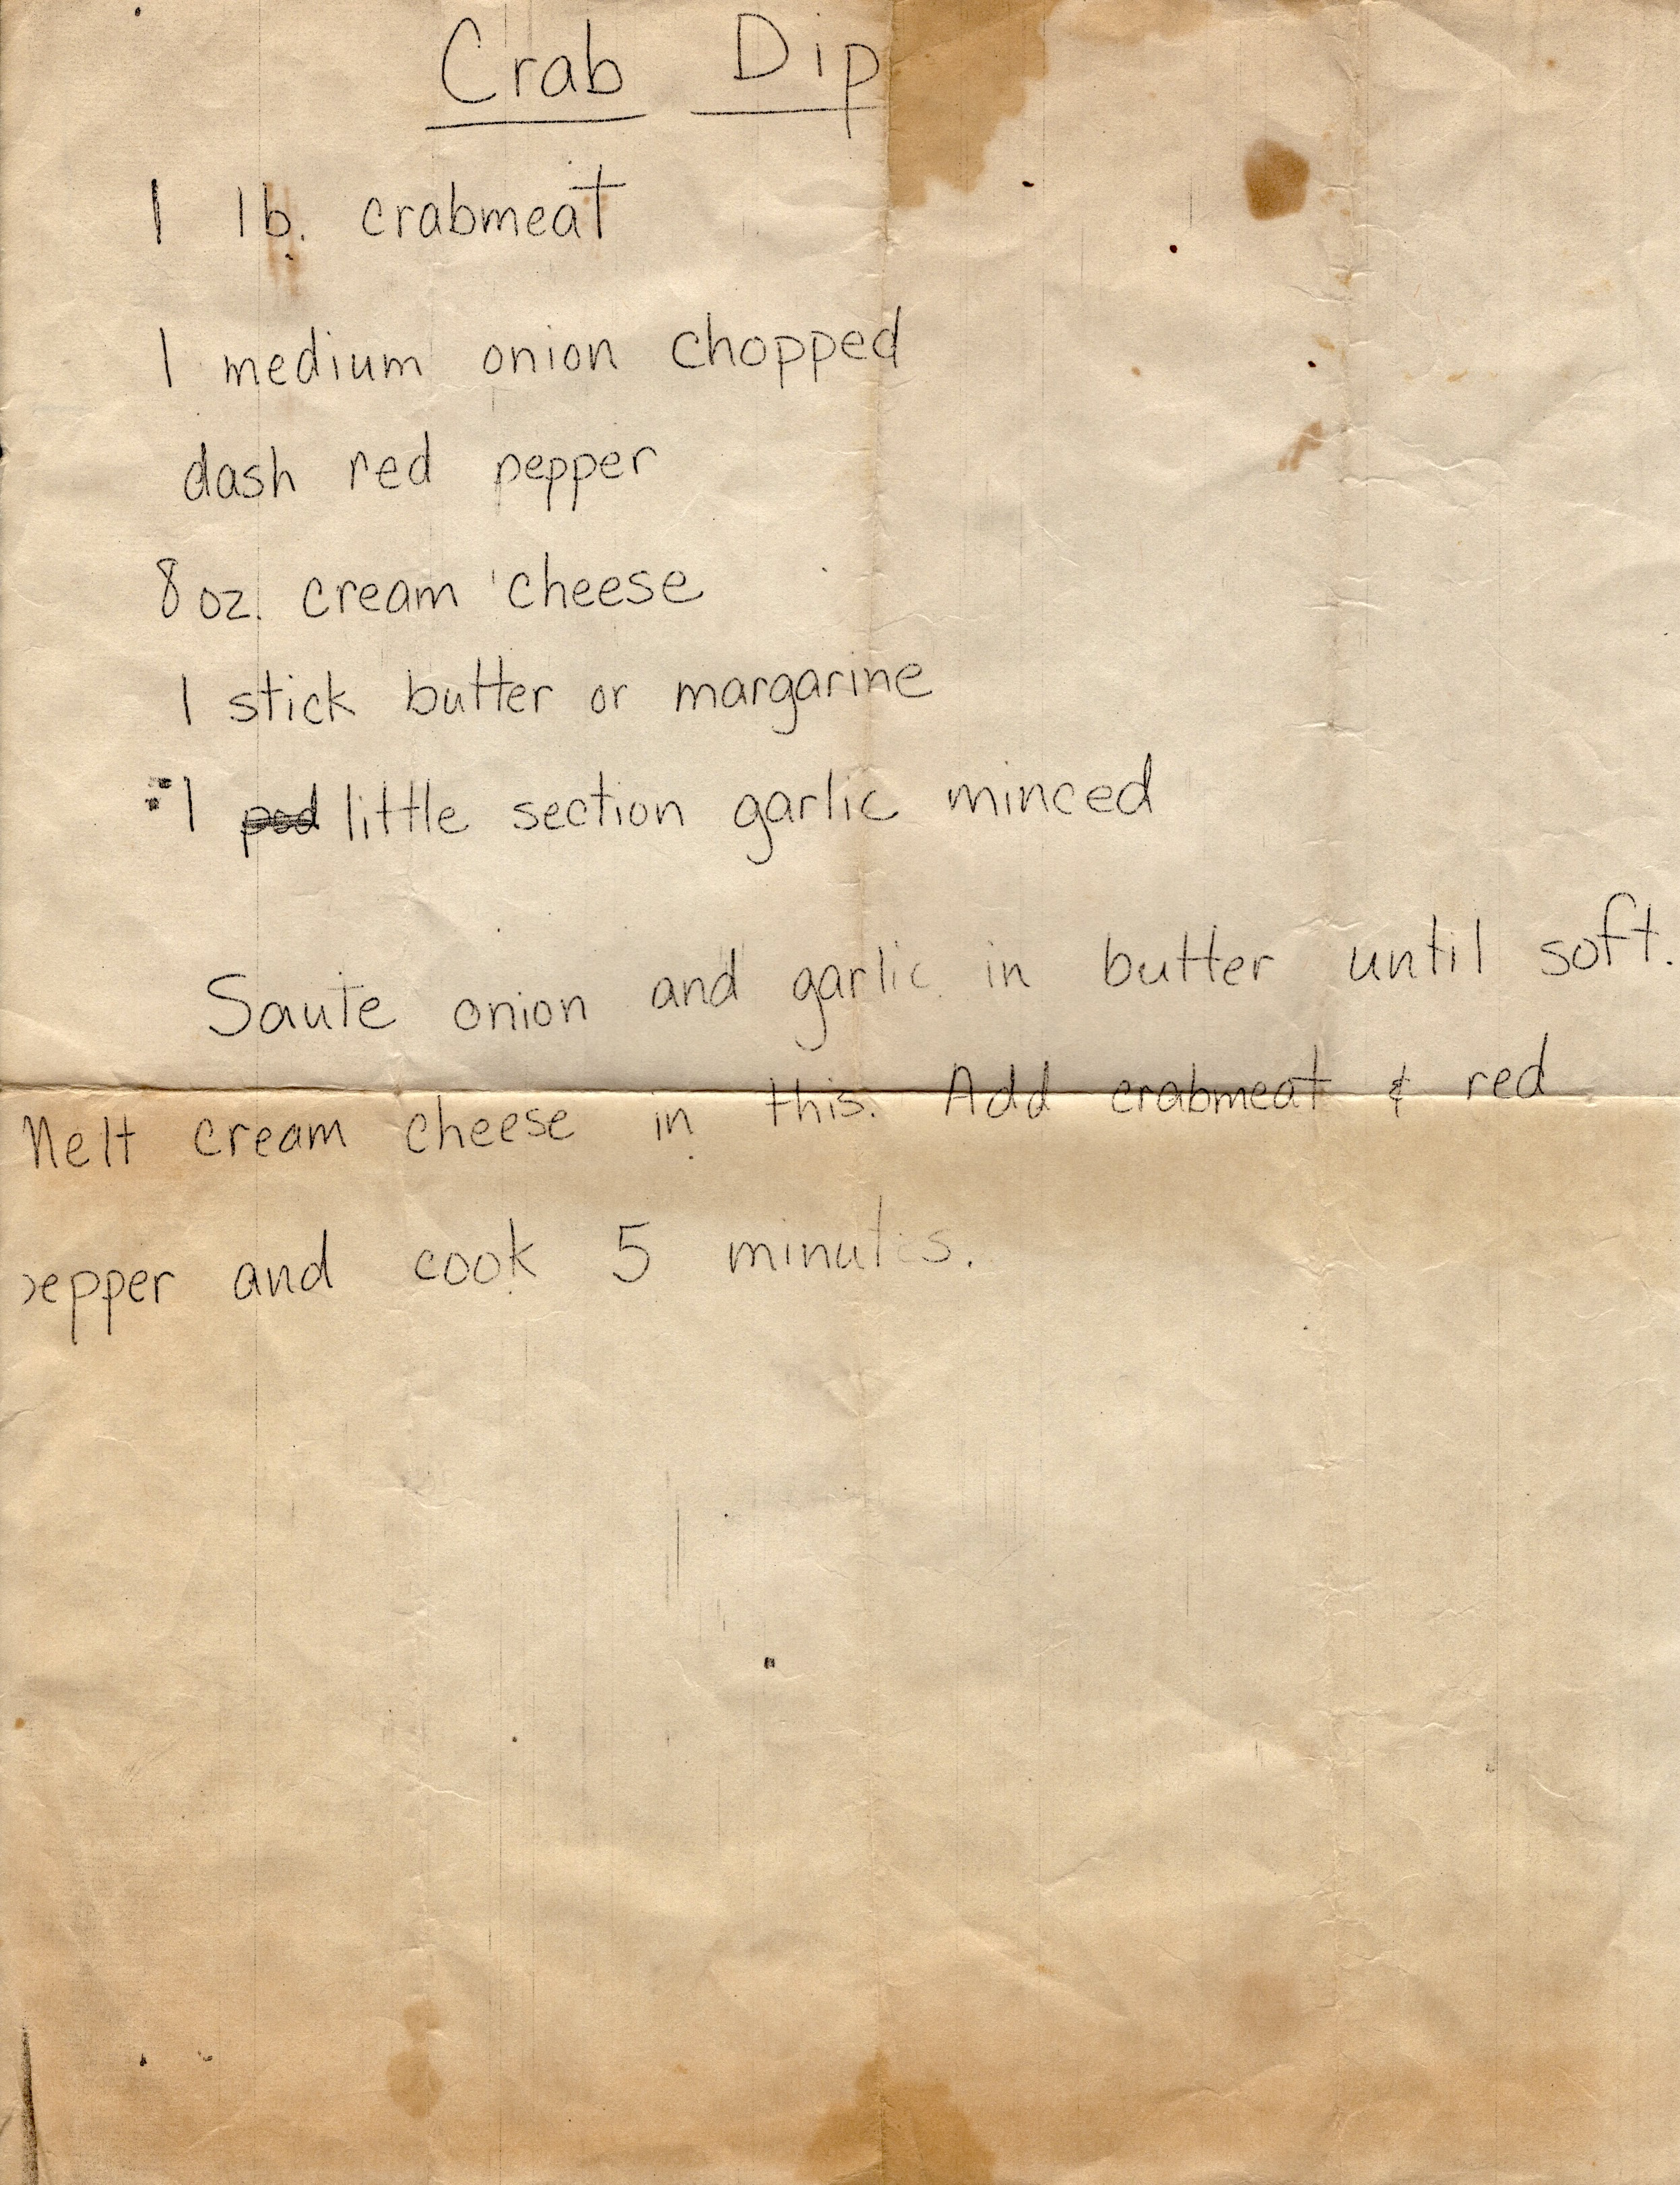 Crab Dip
1 lb. crabmeat
1 medium onion chopped
dash red pepper
8 oz. cream cheese
1 stick butter or margarine
1 pod little section garlic minced
Saute onion and garlic in butter until soft.
Melt cream cheese in this. Add crabmeat & red
pepper and cook 5 minutes.